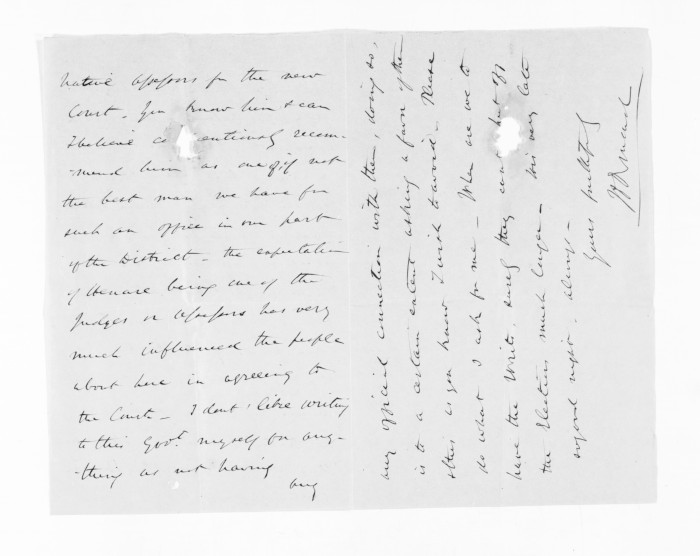 Native Assessors for the new
Court. You know him & can
I believe co entionsly recom-
-mend him as one of if not
the best man we have for
such an office in our part
of the District - the expectation
of Henare being one of the
Judges or Assessors has very
much influenced the people
about here in agreeing to
the Court - I dont like writing
to this Govt. myself for any-
-thing as not having
any
any official connection with them, doing so,
is to a certain extent asking a favor & then
this as you know I wish to avoid - Please
do what I ask for me - When are we to
have the Writs. surely they can put
the Elections much longer - tis very late
so good night. always -
Yours